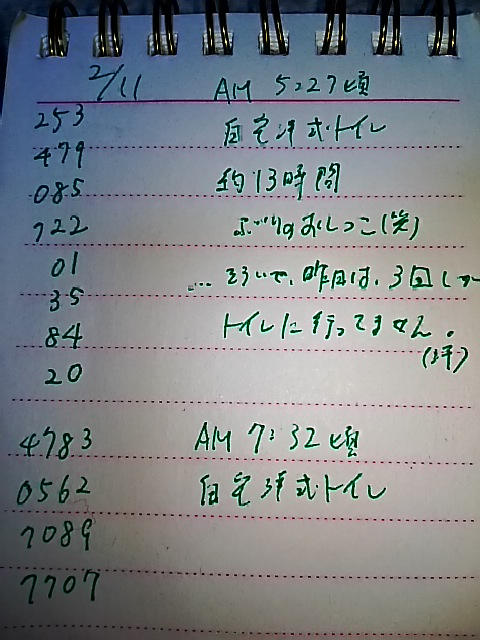 2/11 AM 5:27頃
253 自宅洋式トイレ
479
085 約13時間
722 ぶりのおしっこ(笑)
01
35 昨日は、3回しか
84 トイレに行ってません。
20
4783 AM 7:32頃
0562 自宅洋式トイレ
7089
7707